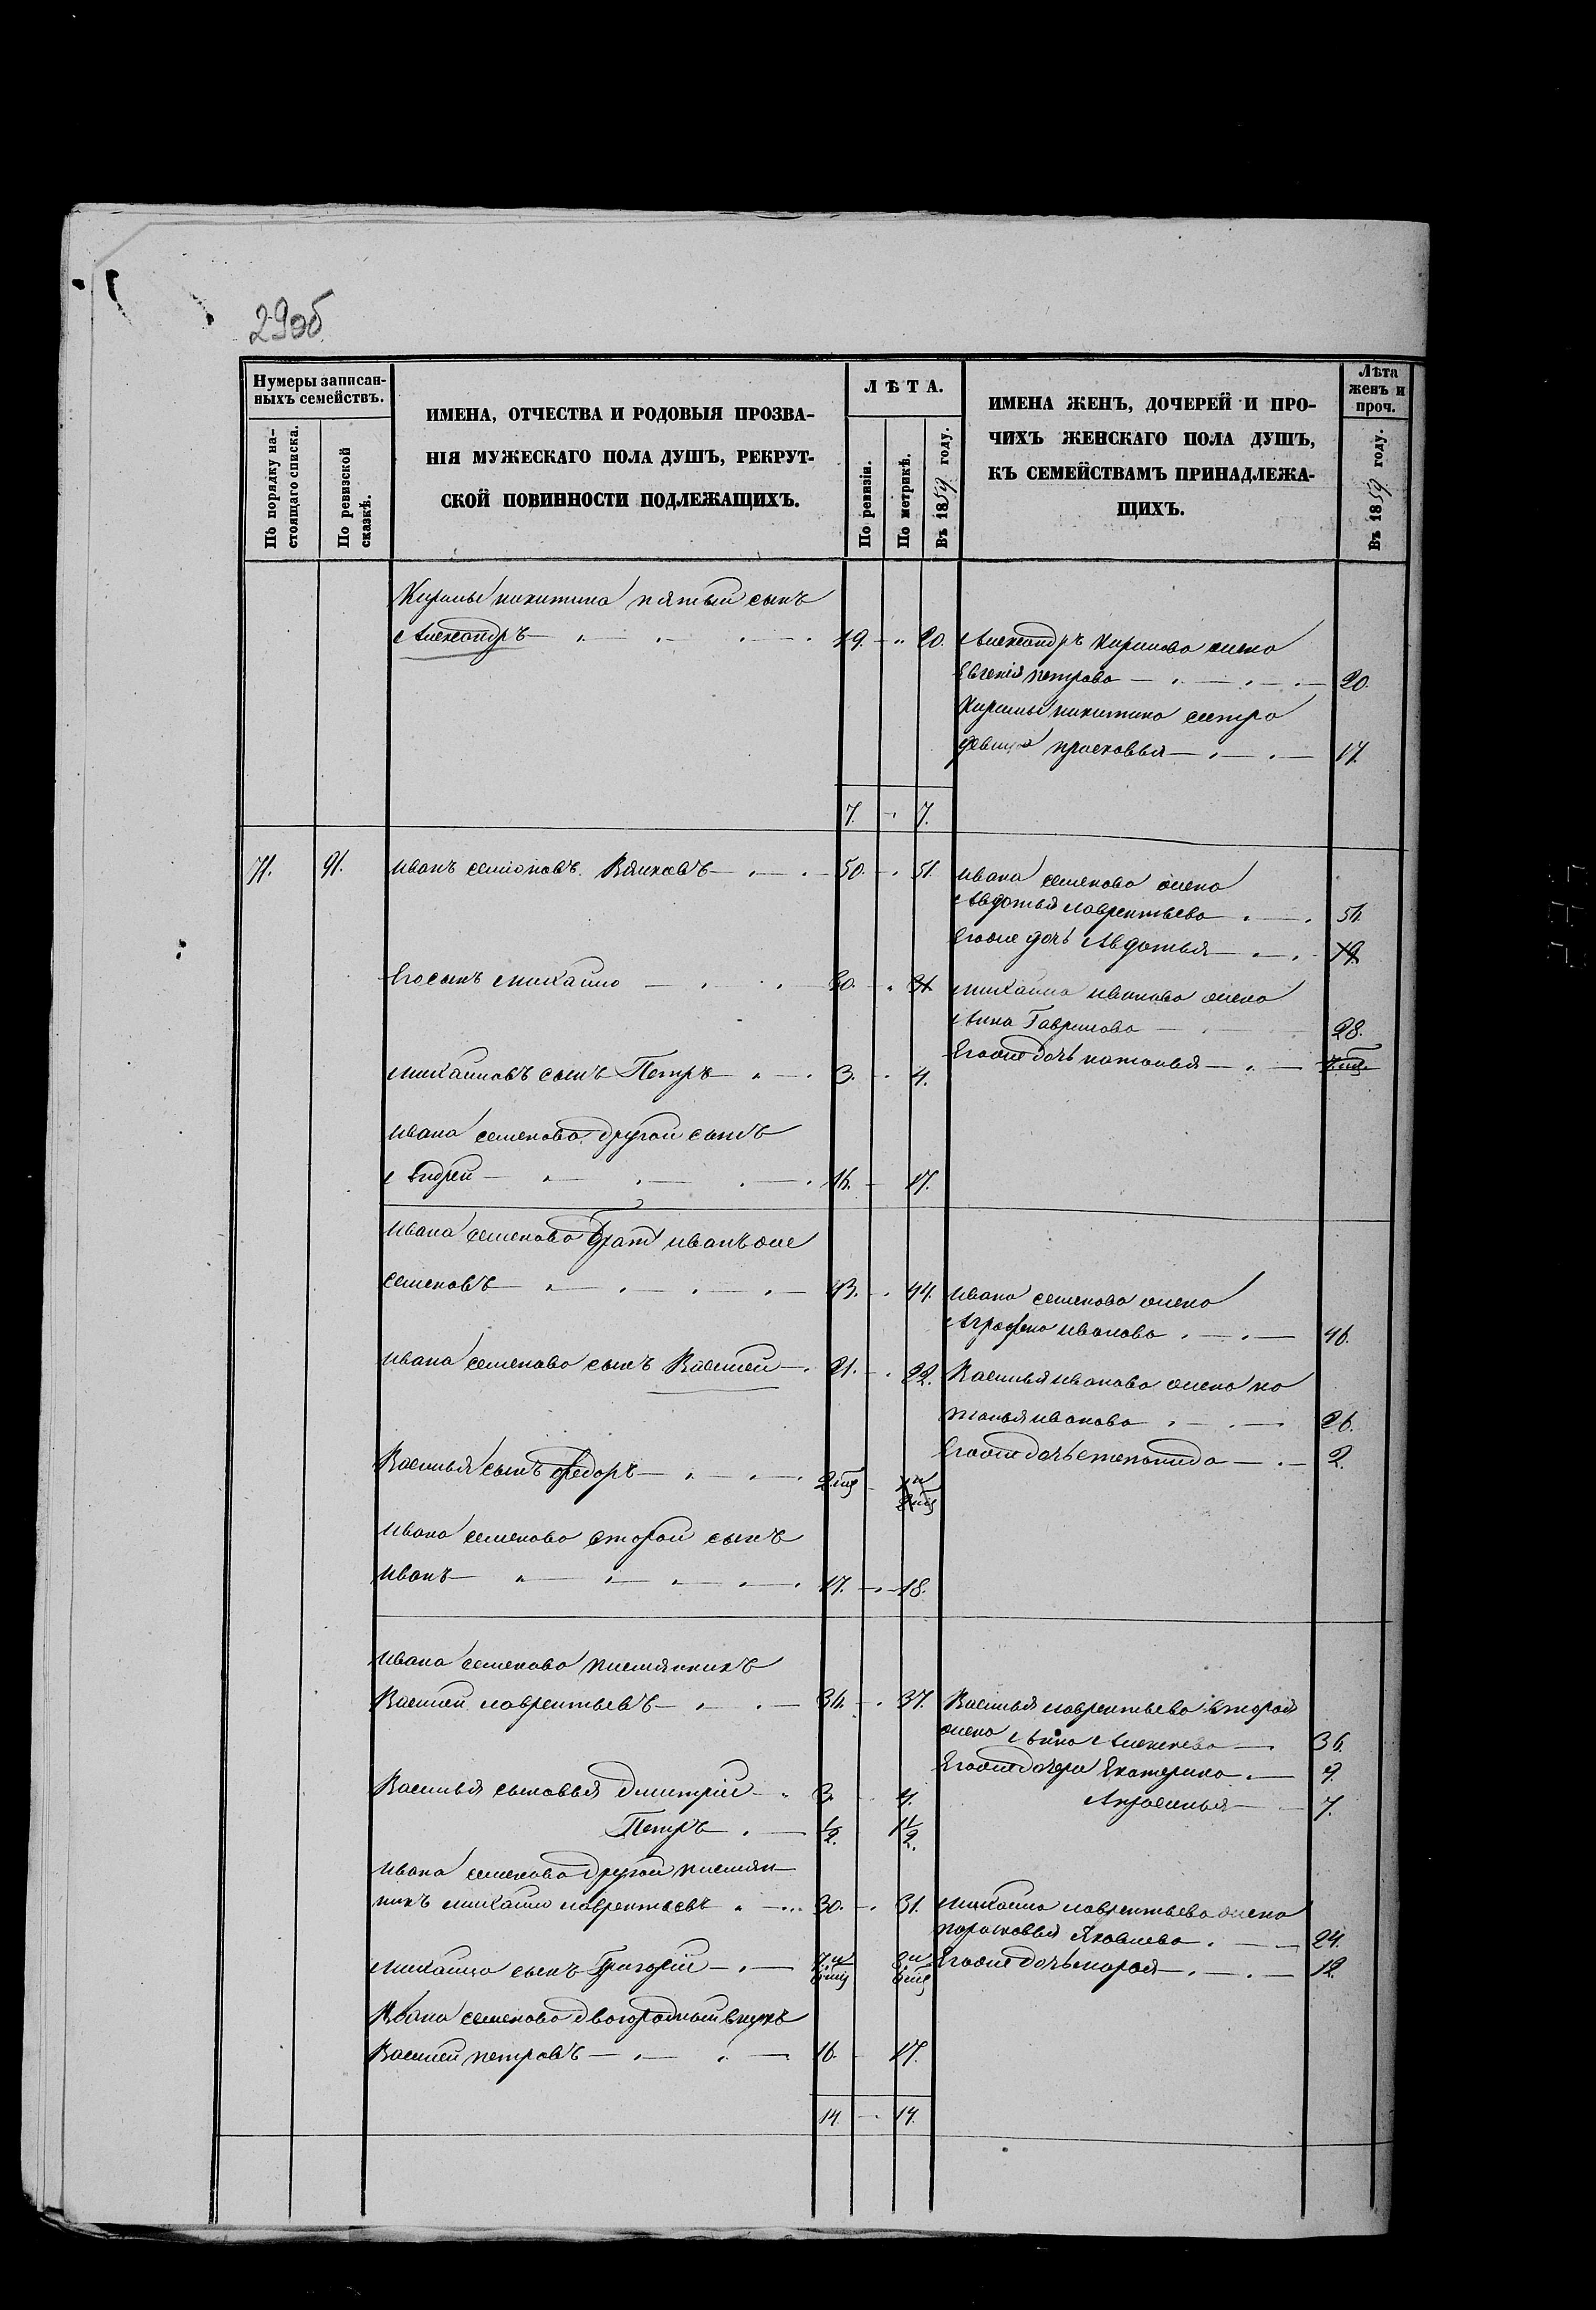 29об
Нумеры записан-
ныхъ семействъ.
По порядку на-
стоящаго списка.
По ревизской
сказкѣ.
ИМЕНА, ОТЧЕСТВА И РОДОВЫЯ ПРОЗВА-
НІЯ МУЖЕСКАГО ПОЛА ДУШЪ, РЕКРУТ-
СКОЙ ПОВИННОСТИ ПОДЛЕЖАЩИХЪ.
ЛѢТА.
По ревизіи.
По метрикѣ.
Въ 1859 году.
ИМЕНА ЖЕНЪ, ДОЧЕРЕЙ И ПРО-
ЧИХЪ ЖЕНСКАГО ПОЛА ДУШЪ,
КЪ СЕМЕЙСТВАМЪ ПРИНАДЛЕЖА-
ЩИХЪ.
Лѣта
женъ и
проч.
Въ 1859 году.
Кирилы никитина пятый сынъ
Александръ 19. 20. Александръ Кирилова жена
Евгенія петрова 20.
Кирилы никитина сестра
девица прасковья 17.
7. 7.
71. 91. Иванъ семіоновъ. 50. 51. Ивана семенова жена
Авдотья лаврентьева 51.
Егоже дочь Авдотья 19.
Его сынъ михайло 30. 31 михайла иванова жена
Анна Гаврилова 28.
михайловъ сынъ Петръ 3. 4. Егоже дочь наталья
Ивана семенова другой сынъ
Андрей 16. 17.
Ивана семенова братъ иванъ же
семеновъ 43. 44. Ивана семенова жена
Аграфена иванова 46.
Ивана семенова сынъ Василей 21. 22. Василья иванова жена на
талья иванова 26.
Егоже дочь степанида 2.
Василья сынъ федоръ
Ивана семенова второй сынъ
Иванъ 17. 18.
Ивана семенова племянникъ
Василей лаврентьевъ 36. 37. Василья лаврентьева вторая
жена Анна Алексеева 36.
Егоже дочери Екатерина 9.
Василья сыновья Дмитрій 3. 4. Апросинья 7.
Петръ 1/2. 1 1/2.
Ивана семенова другой племян-
никъ михайло лаврентьевъ 30. 31. михайла лаврентьева жена
парасковья Яковлева 24.
михайла сынъ Григорій Егоже дочь марья 12.
Ивана семенова двоюродный внукъ
Василей петровъ 16. 17.
14. 14.